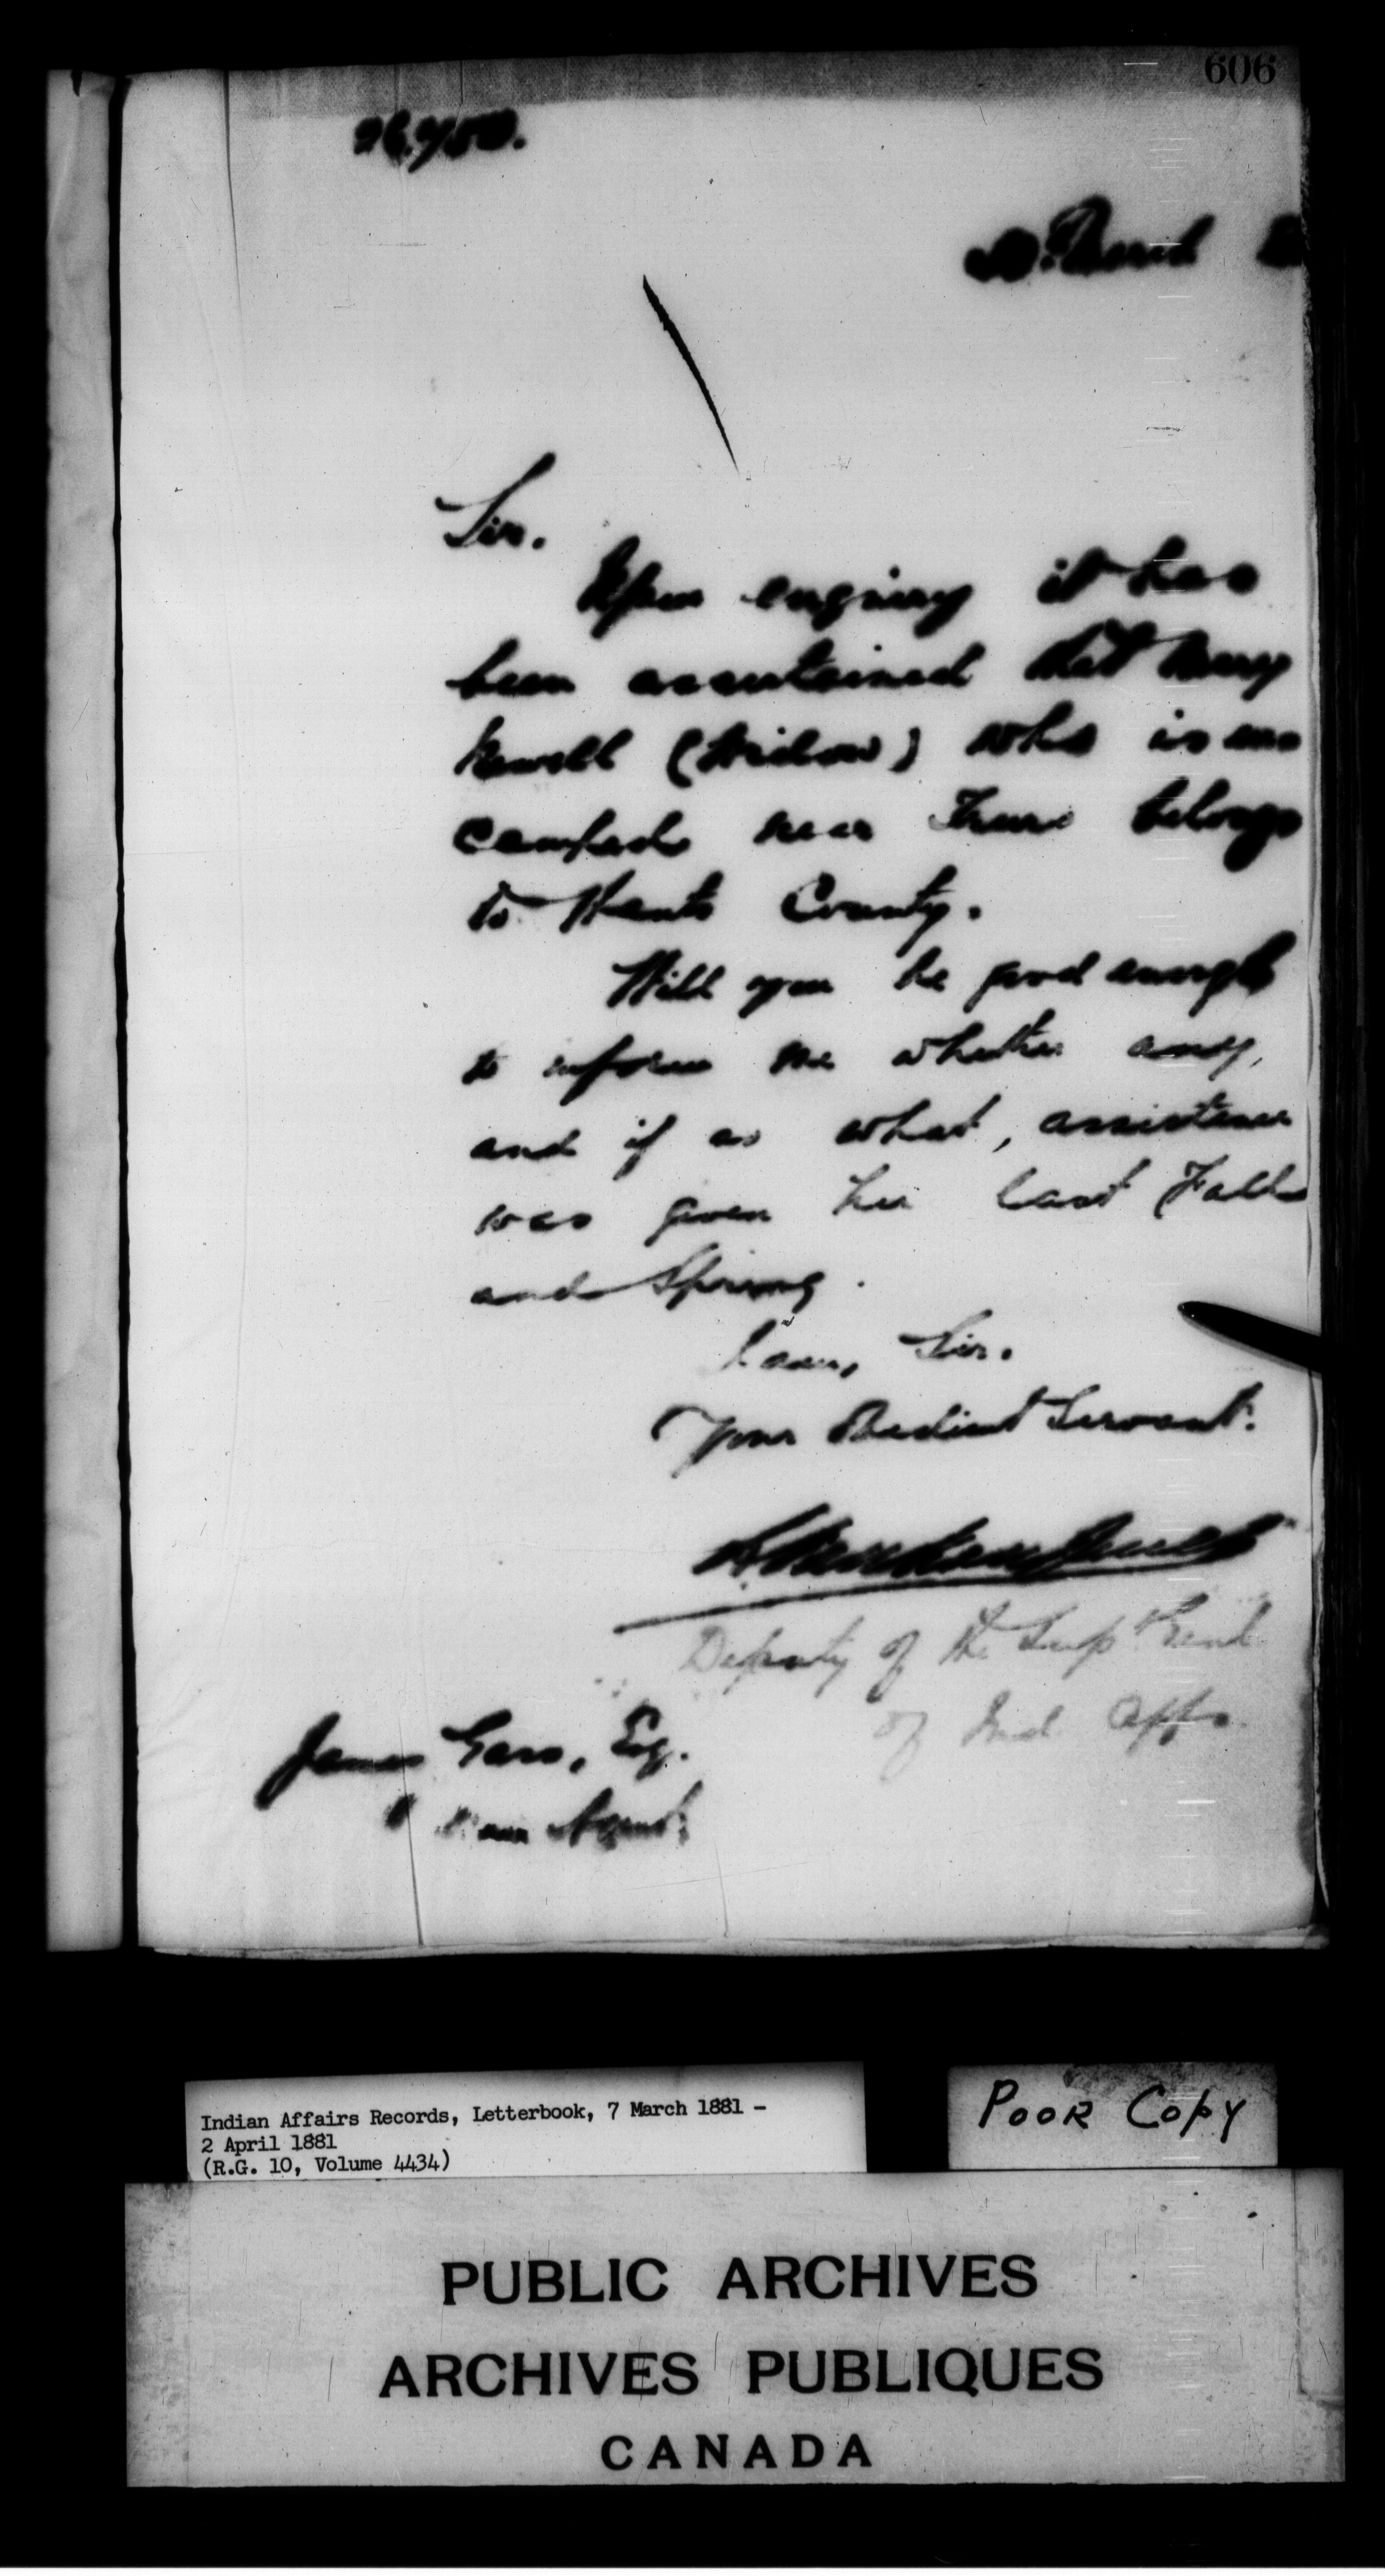 606
Sir.
Upon enquiry it has
been ascertained that Mary
(Widow) who is en
camped near Truro belongs
to Hants County.
Will you be good enough
to inform me whether any,
and if so what, assistance
was given her last Fall
and Spring.
I am, Sir.
Your Obedient Servant.
Deputy of the Supt Genl
of Ind Affs.
James Gass, Esq.
Agent.
Indian Affairs Records, Letterbook, 7 March 1881 -
2 April 1881
(R.G. 10, Volume 4434)
Poor Copy
PUBLIC ARCHIVES
ARCHIVES PUBLIQUES
CANADA